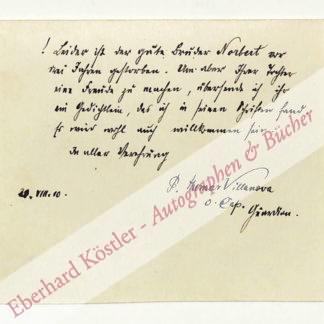 ! Leider ist der gute Bruder Norbert vor
drei Jahren gestorben. Um aber Ihrer Tochter
eine Freude zu machen, übersende ich ihr
ein Gedichtlein, das ich in seinen Schriften fand.
Es wird wohl auch willkommen sein.
In aller Verehrung
20. VIII. 10.
P. Thomas Villanova
O. Cap.
Guardian.
Eberhard Köstler - Autographen & Bücher